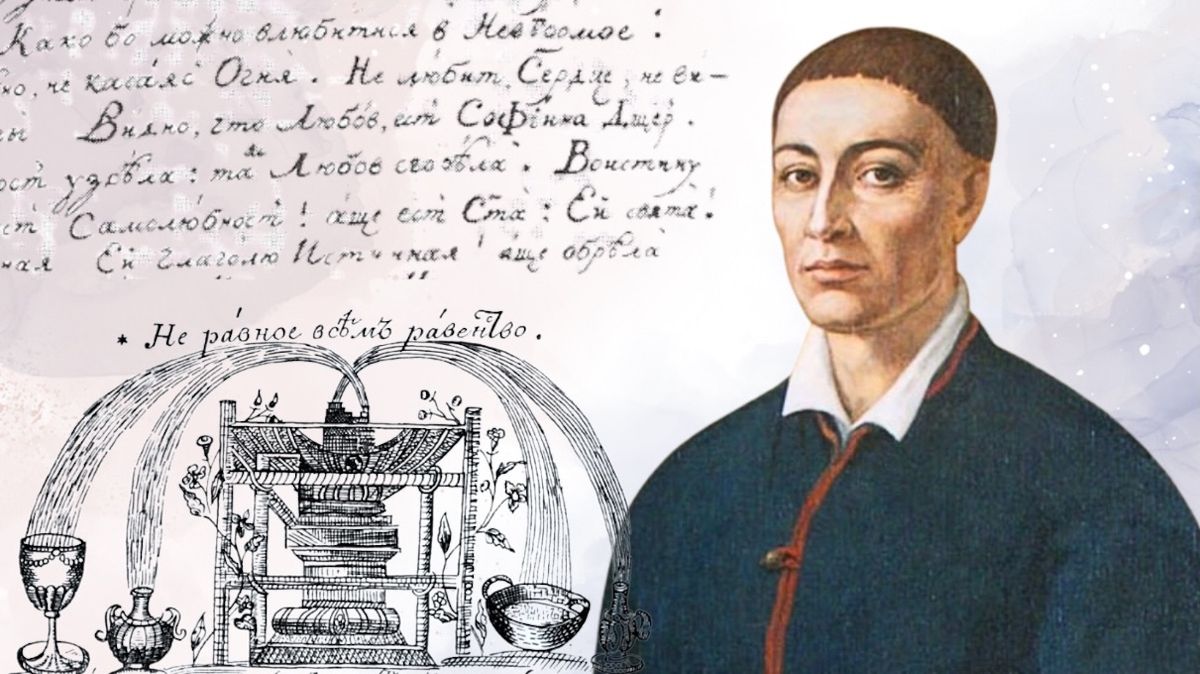 Како бо мóжно влюбитися в Невѣдомое !
не касáяс Огня. Не любит Сердце, не ви-
Видно, что Любóв, ест Софíина Дщер.
узрѣла: Любов сгорѣла. Воистину
Самолюбност! áще ест Ста: Ей свята!
Ей глаголю Истинная áще обрѣла
* Не рáвное всѣмъ рáвенство.